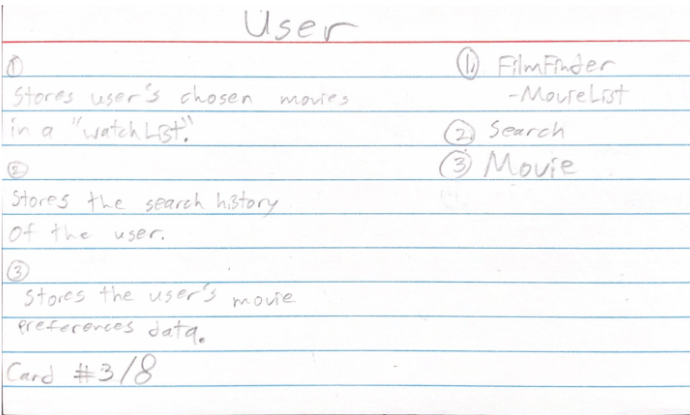 User
①
Stores user's chosen movies
in a "watchList."
②
Stores the search history
of the user.
③
Stores the user's movie
preferences data.
Card #3/8
① FilmFinder
-MovieList
② Search
③ Movie